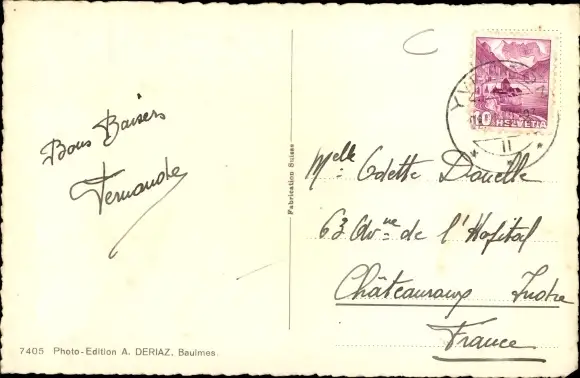 Bons Baisers
Fernande
Fabrication Suisse
HELVETIA
II
Melle Odette Douelle
63 Avne de l'Hopital
Châteauroux Indre
France
7405 Photo-Edition A. DERIAZ, Baulmes